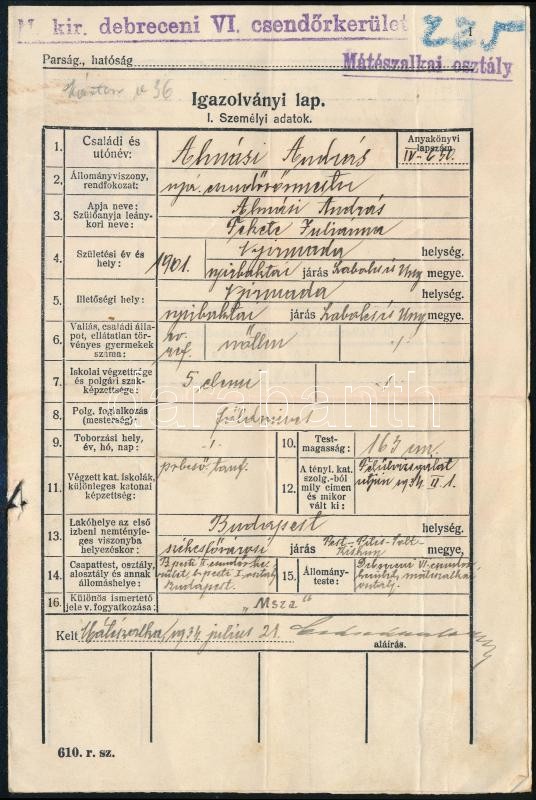 M. kir. debreceni VI. csendőrkerület
225
I
Parság., hatóság
Mátészalkai osztály
Igazolványi lap.
I. Személyi adatok.
1. Családi és utónév: Almási András
Anyakönyvi lapszám IV-650.
2. Állományviszony, rendfokozat: nyá. csendőrőrmester
3. Apja neve: Almási András
Szülőanyja leánykori neve: Fekete Julianna
4. Születési év és hely: 1901. Nyirmada helység.
nyirbaktai járás Szabolcs és Ung megye.
5. Illetőségi hely: Nyirmada helység.
nyirbaktai járás Szabolcs és Ung megye.
6. Vallás, családi állapot, ellátatlan törvényes gyermekek száma: ev. ref. nőtlen
7. Iskolai végzettsége és polgári szakképzettsége: 5 elemi
8. Polg. foglalkozás (mesterség): földmives
9. Toborzási hely, év, hó, nap:
10. Testmagasság: 163 cm.
11. Végzett kat. iskolák, különleges katonai képzettség:
12. A tényl. kat. szolg.-ból mily címen és mikor vált ki: Felülvizsgálat utján 1934. II. 1.
13. Lakóhelye az első ízbeni nemtényleges viszonyba helyezéskor: Budapest helység.
székesfővárosi járás Pest-Pilis-Solt-Kiskun megye,
14. Csapattest, osztály, alosztály és annak állomáshelye: Budapest.
15. Állományteste: Debreceni VI. csendőrkerület, mátészalkai osztály.
16. Különös ismertető jele v. fogyatkozása: „Msza"
Kelt Mátészalka, 1934. július 21.
aláírás.
610. r. sz.
darabanth